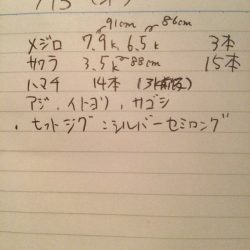 7/15 (オ)
91cm 86cm
メジロ 7.9k 6.5k 3本
サワラ 3.5k 88cm 15本
ハマチ 14本 (3k前後)
アジ、イトヨリ、サゴシ
・ヒットジグ:シルバーセミロング